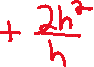 + \frac{2h^2}{h}